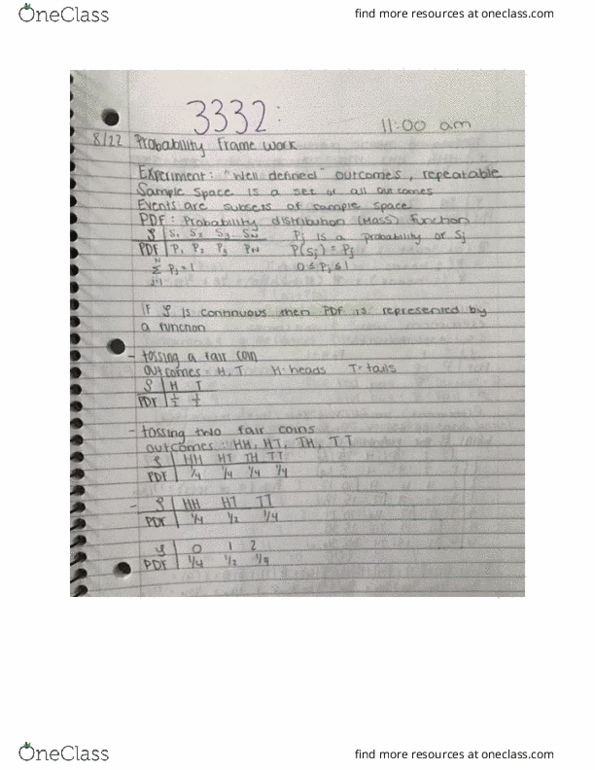 OneClass
find more resources at oneclass.com
3332:
11:00 am
8/22 Probability Frame work
Experiment: "Well defined" outcomes, repeatable
Sample Space is a set of all outcomes
Events are subsets of sample space
PDF: Probability distribution (Mass) Function
S | S₁ S₂ S₃ SN Pj is a probability of Sj
PDF | P₁ P₂ P₃ PN P(Sj) = Pj
N Σ j=1 Pj = 1 0 ≤ Pj ≤ 1
If S is continuous then PDF is represented by
a function
- tossing a fair coin
outcomes: H, T H-heads T-tails
S | H T
PDF | 1/2 1/2
- tossing two fair coins
outcomes: HH, HT, TH, TT
S | HH HT TH TT
PDF | 1/4 1/4 1/4 1/4
- S | HH HT TT
PDF | 1/4 1/2 1/4
S | 0 1 2
PDF | 1/4 1/2 1/4
OneClass
find more resources at oneclass.com